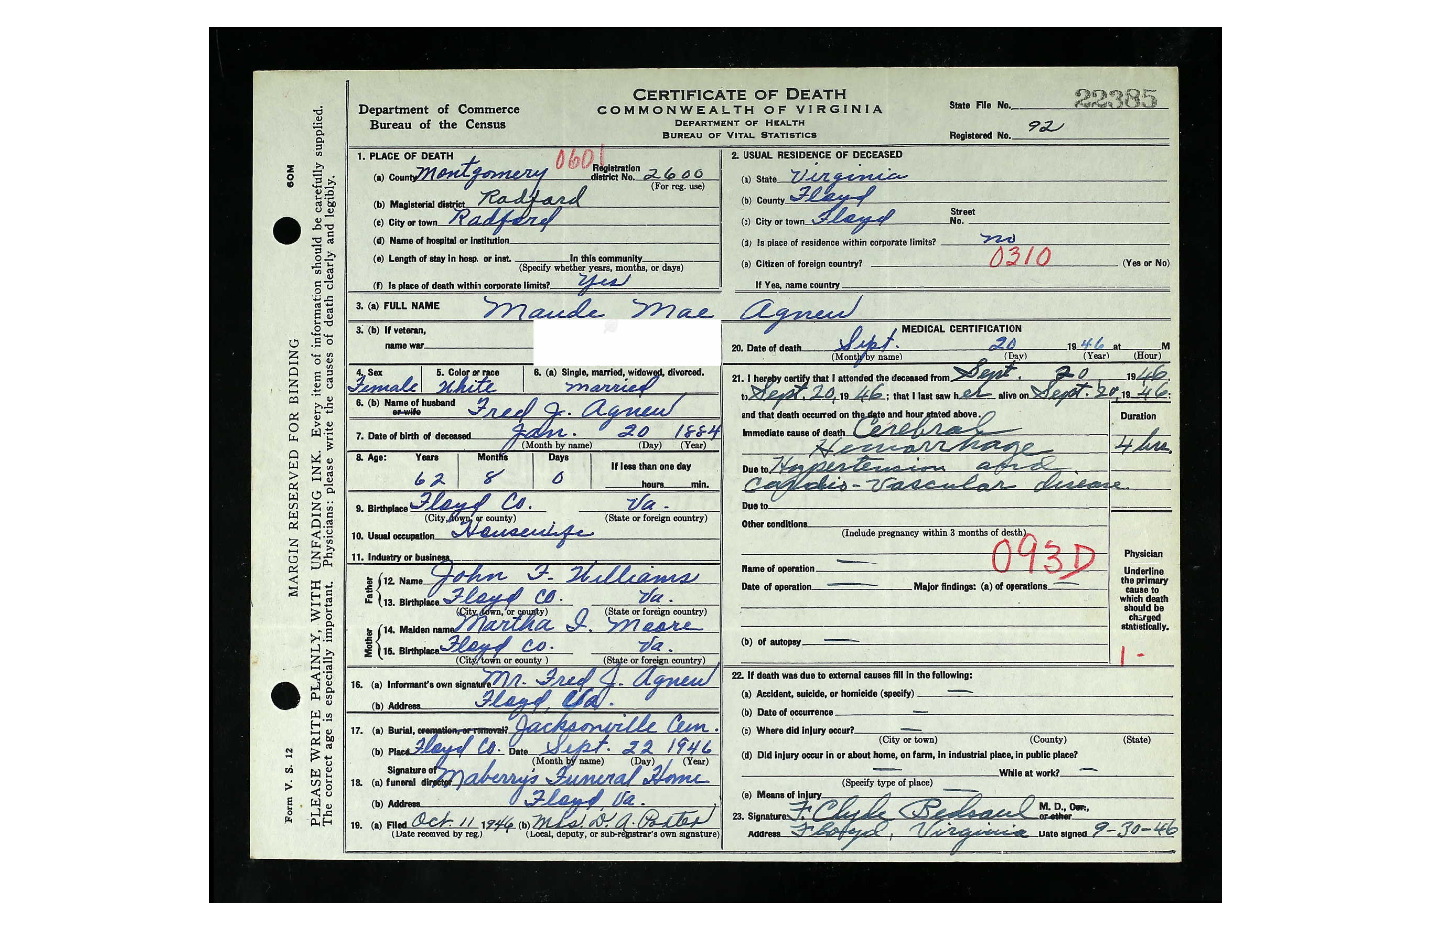 CERTIFICATE OF DEATH
COMMONWEALTH OF VIRGINIA
DEPARTMENT OF HEALTH
BUREAU OF VITAL STATISTICS
Department of Commerce
Bureau of the Census
State File No. 22385
Registered No. 92
Form V. S. 12 MARGIN RESERVED FOR BINDING 60M
PLEASE WRITE PLAINLY, WITH UNFADING INK. Every item of information should be carefully supplied.
The correct age is especially important. Physicians: please write the causes of death clearly and legibly.
1. PLACE OF DEATH 0601
(a) County Montgomery Registration district No. 2600
(For reg. use)
(b) Magisterial district Radford
(c) City or town Radford
(d) Name of hospital or institution
(e) Length of stay in hosp. or inst. In this community
(Specify whether years, months, or days)
(f) Is place of death within corporate limits? Yes
2. USUAL RESIDENCE OF DECEASED
(a) State Virginia
(b) County Floyd
(c) City or town Floyd Street No.
(d) Is place of residence within corporate limits? no
(e) Citizen of foreign country? 0310 (Yes or No)
If Yes, name country
3. (a) FULL NAME Maude Mae Agnew
3. (b) If veteran,
name war
4. Sex 5. Color or race 6. (a) Single, married, widowed, divorced.
Female White married
6. (b) Name of husband or wife Fred J. Agnew
7. Date of birth of deceased Jan. 20 1884
(Month by name) (Day) (Year)
8. Age: Years Months Days If less than one day
62 8 0 hours min.
9. Birthplace Floyd Co. Va.
(City, town, or county) (State or foreign country)
10. Usual occupation Housewife
11. Industry or business
Father
12. Name John F. Williams
13. Birthplace Floyd Co. Va.
(City, town, or county) (State or foreign country)
Mother
14. Maiden name Martha I. Moore
15. Birthplace Floyd Co. Va.
(City, town or county ) (State or foreign country)
16. (a) Informant's own signature Mr. Fred J. Agnew
(b) Address Floyd, Va.
17. (a) Burial, cremation, or removal? Jacksonville Cem.
(b) Place Floyd Co. Date Sept. 22 1946
(Month by name) (Day) (Year)
18. (a) Signature of funeral director Maberry's Funeral Home
(b) Address Floyd, Va.
19. (a) Filed Oct. 11, 1946 (b) Mrs. D. A. Porter
(Date received by reg.) (Local, deputy, or sub-registrar's own signature)
MEDICAL CERTIFICATION
20. Date of death Sept. 20 1946 at M
(Month by name) (Day) (Year) (Hour)
21. I hereby certify that I attended the deceased from Sept. 20 1946
to Sept. 20, 1946; that I last saw her alive on Sept. 20, 1946.
and that death occurred on the date and hour stated above. Duration
Immediate cause of death Cerebral
Hemorrhage 4 hrs.
Due to Hypertension and
Cardio-Vascular disease
Due to
Other conditions
(Include pregnancy within 3 months of death)
093D
Name of operation
Date of operation Major findings: (a) of operations
(b) of autopsy
Physician
Underline
the primary
cause to
which death
should be
charged
statistically.
1-
22. If death was due to external causes fill in the following:
(a) Accident, suicide, or homicide (specify)
(b) Date of occurrence
(c) Where did injury occur?
(City or town) (County) (State)
(d) Did injury occur in or about home, on farm, in industrial place, in public place?
While at work?
(Specify type of place)
(e) Means of injury
23. Signature F. Clyde Bedsaul M. D., Cor., or other
Address Floyd, Virginia Date signed 9-30-46